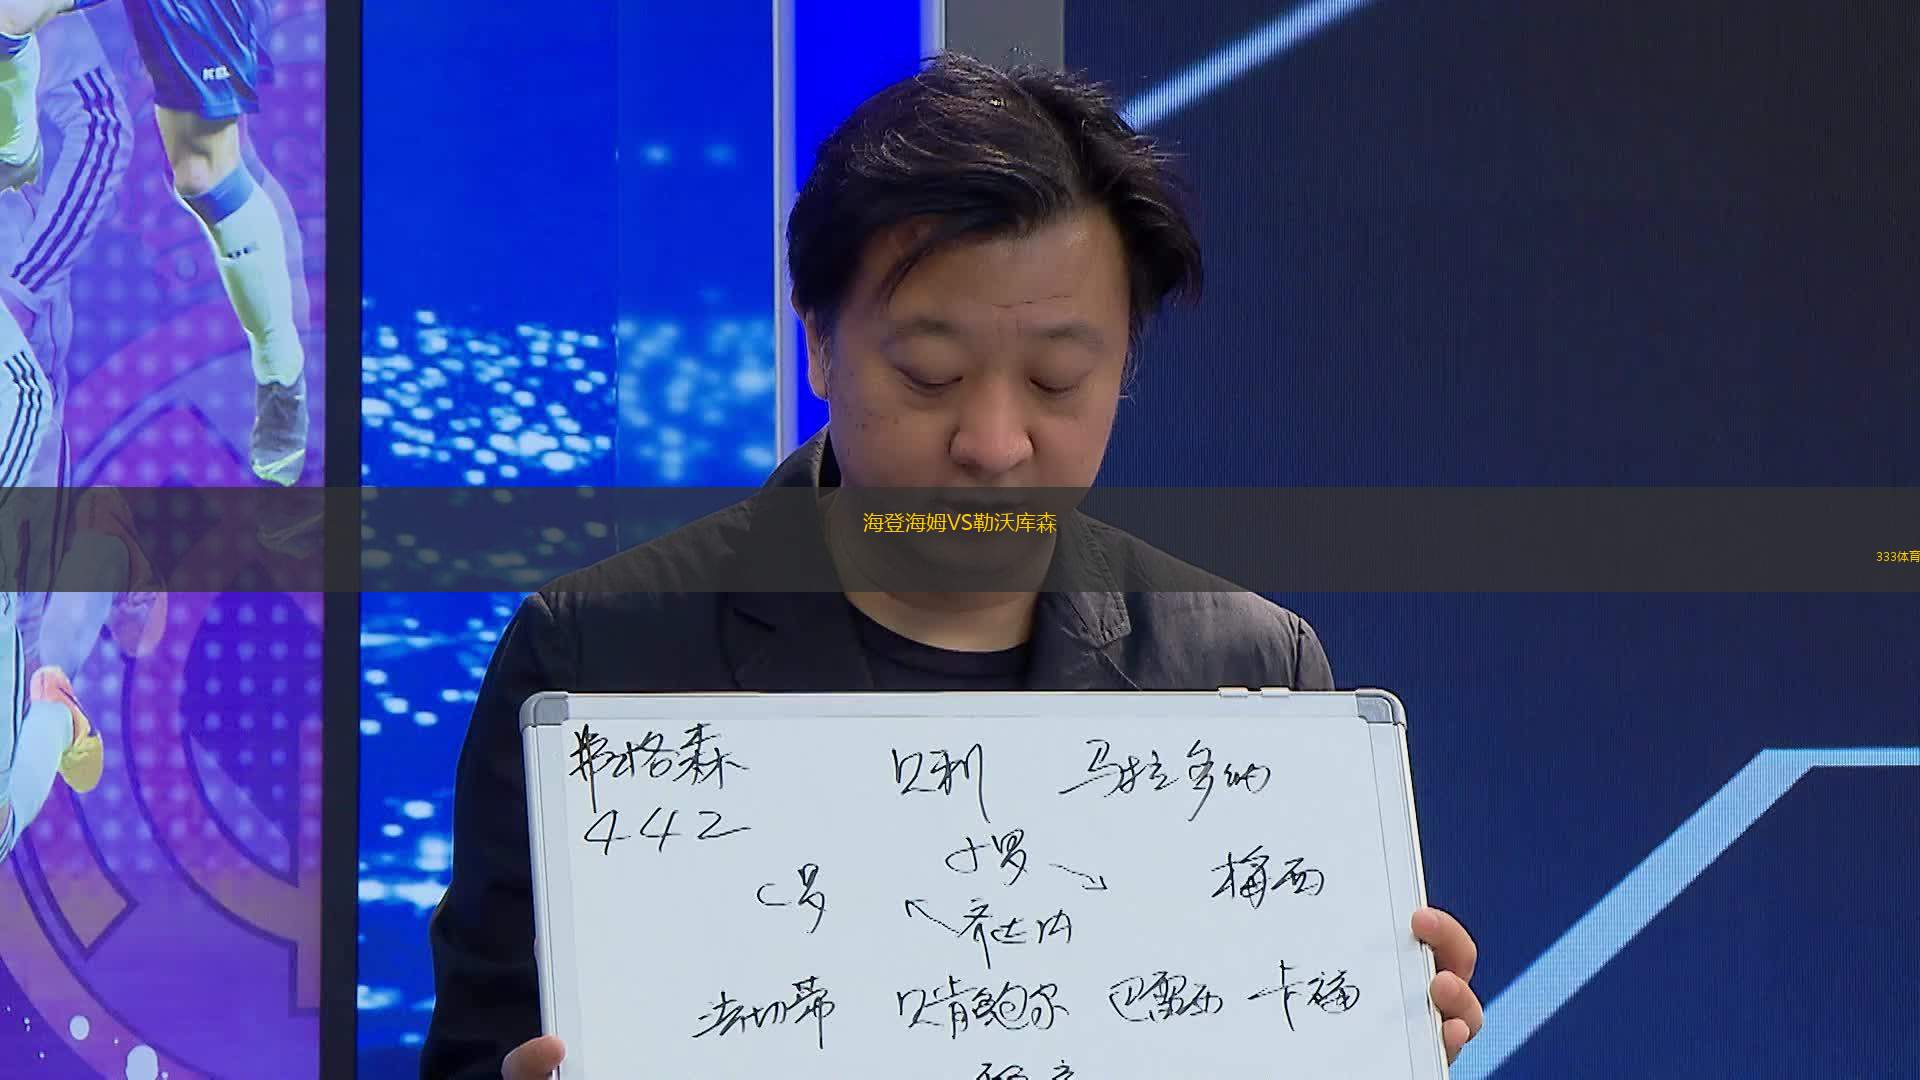 海登海姆VS勒沃库森
333体育
弗格森 贝利 马拉多纳
442
小罗
C罗 梅西
齐达内
法切蒂 贝肯鲍尔 巴雷西 卡福